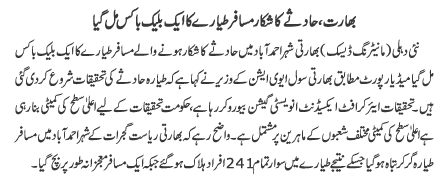 بھارت، حادثے کا شکار مسافر طیارے کا ایک بلیک باکس مل گیا
نئی دہلی (مانیٹرنگ ڈیسک) بھارتی شہر احمد آباد میں حادثے کا شکار ہونے والے مسافر طیارے کا ایک بلیک باکس
مل گیا میڈیا رپورٹ مطابق بھارتی سول ایوی ایشن کے وزیر نے کہا ہے کہ طیارہ حادثے کی تحقیقات شروع کر دی گئی
ہیں۔ تحقیقات ایئر کرافٹ ایکسیڈنٹ انویسٹی گیشن بیورو کر رہا ہے، حکومت تحقیقات کے لیے اعلیٰ سطح کی کمیٹی بنا رہی
ہے اعلیٰ سطح کی کمیٹی مختلف شعبوں کے ماہرین پر مشتمل ہے۔ واضح رہے کہ بھارتی ریاست گجرات کے شہر احمد آباد میں مسافر
طیارہ گر کر تباہ ہو گیا جسکے نتیجے طیارے میں سوار تمام 241 افراد ہلاک ہو گئے جبکہ ایک مسافر معجزانہ طور پر بچ گیا۔